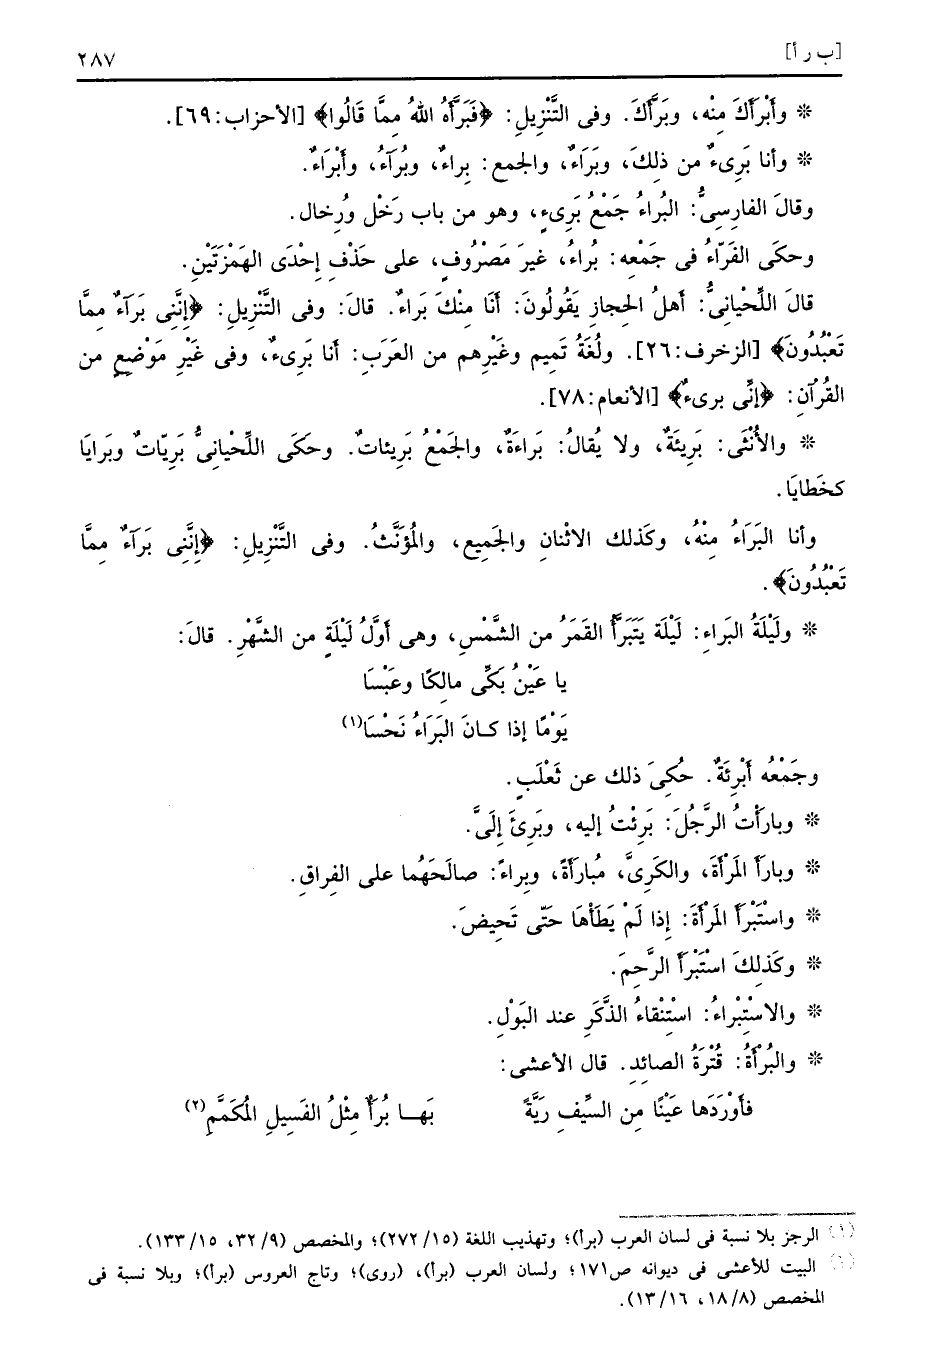 [ب ر أ] ٢٨٧
※ وأَبْرَأَكَ مِنْه، وبَرَّأَكَ. وفى التَّنْزِيلِ: ﴿فَبَرَّأَهُ اللهُ مِمَّا قَالُوا﴾ [الأحزاب:٦٩].
※ وأنا بَرِىءٌ من ذلِكَ، وبَرَاءٌ، والجمع: بِراءٌ، وبُرَآءُ، وأَبْرَاءٌ.
وقالَ الفارِسِىُّ: البُراءُ جَمْعُ بَرِىءٍ، وهو من باب رَخْل ورُخال.
وحكَى الفَرّاءُ فى جَمْعِه: بُراءُ، غيرَ مَصْرُوفٍ، على حَذْفِ إِحْدَى الهَمْزَتَيْنِ.
قالَ اللِّحْيانِىُّ: أهلُ الحِجازِ يَقُولُونَ: أَنَا مِنْكَ بَراءٌ. قالَ: وفى التَّنْزِيلِ: ﴿إِنَّنِى بَرَآءٌ مِمَّا
تَعْبُدُونَ﴾ [الزخرف:٢٦]. ولُغَةُ تَمِيم وغَيْرِهم من العَرَبِ: أنا بَرِىءٌ، وفى غَيْرِ مَوْضِعٍ من
القُرْآنِ: ﴿إِنِّى برىءٌ﴾ [الأنعام:٧٨].
※ والأُنْثَى: بَرِيئَةٌ، ولا يُقالُ: بَراءَةٌ، والجَمْعُ بَرِيئاتٌ. وحكَى اللِّحْيانِىُّ بَرِيّاتٌ وبَرايَا
كخَطايَا.
وأنا البَرَاءُ مِنْهُ، وكَذلك الاثْنانِ والجَمِيع، والمُؤَنَّثُ. وفى التَّنْزِيلِ: ﴿إِنَّنِى بَرَآءٌ مِمَّا
تَعْبُدُونَ﴾.
※ ولَيْلَةُ البَراءِ: لَيْلَة يَتَبَرَّأُ القَمَرُ من الشَّمْسِ، وهى أَوَّلُ لَيْلَةٍ من الشَّهْرِ. قالَ:
يا عَيْنُ بَكِّى مالِكًا وعَبْسَا
يَوْمًا إذا كـانَ البَرَاءُ نَحْسَا(١)
وجَمْعُه أَبْرِئَةٌ. حُكِىَ ذلك عن ثَعْلَبٍ.
※ وبارَأْتُ الرَّجُلَ: بَرِئْتُ إليه، وبَرِئَ إِلَىَّ.
※ وبارَأَ المَرْأَةَ، والكَرِىَّ، مُبارَأَةً، وبِراءً: صالَحَهُما على الفِراقِ.
※ واسْتَبْرَأَ المَرْأَةَ: إِذا لَمْ يَطَأْهَا حَتّى تَحِيضَ.
※ وكَذلِكَ اسْتَبْرَأَ الرَّحِمَ.
※ والاسْتِبْراءُ: اسْتِنْقاءُ الذَّكَرِ عند البَوْلِ.
※ والبُرْأَةُ: قُتْرَةُ الصائِدِ. قال الأعشى:
فأَوْرَدَها عَيْنًا مِن السِّيفِ رَيَّةً بَهـا بُرَأٌ مِثْلُ الفَسِيلِ المُكَمَّمِ(٢)
(١) الرجز بلا نسبة فى لسان العرب (برأ)؛ وتهذيب اللغة (٢٧٢/١٥)؛ والمخصص (٣٢/٩، ١٣٣/١٥).
(٢) البيت للأعشى فى ديوانه ص١٧١؛ ولسان العرب (برأ)، (روى)؛ وتاج العروس (برأ)؛ وبلا نسبة فى
المخصص (١٨/٨، ١٣/١٦).